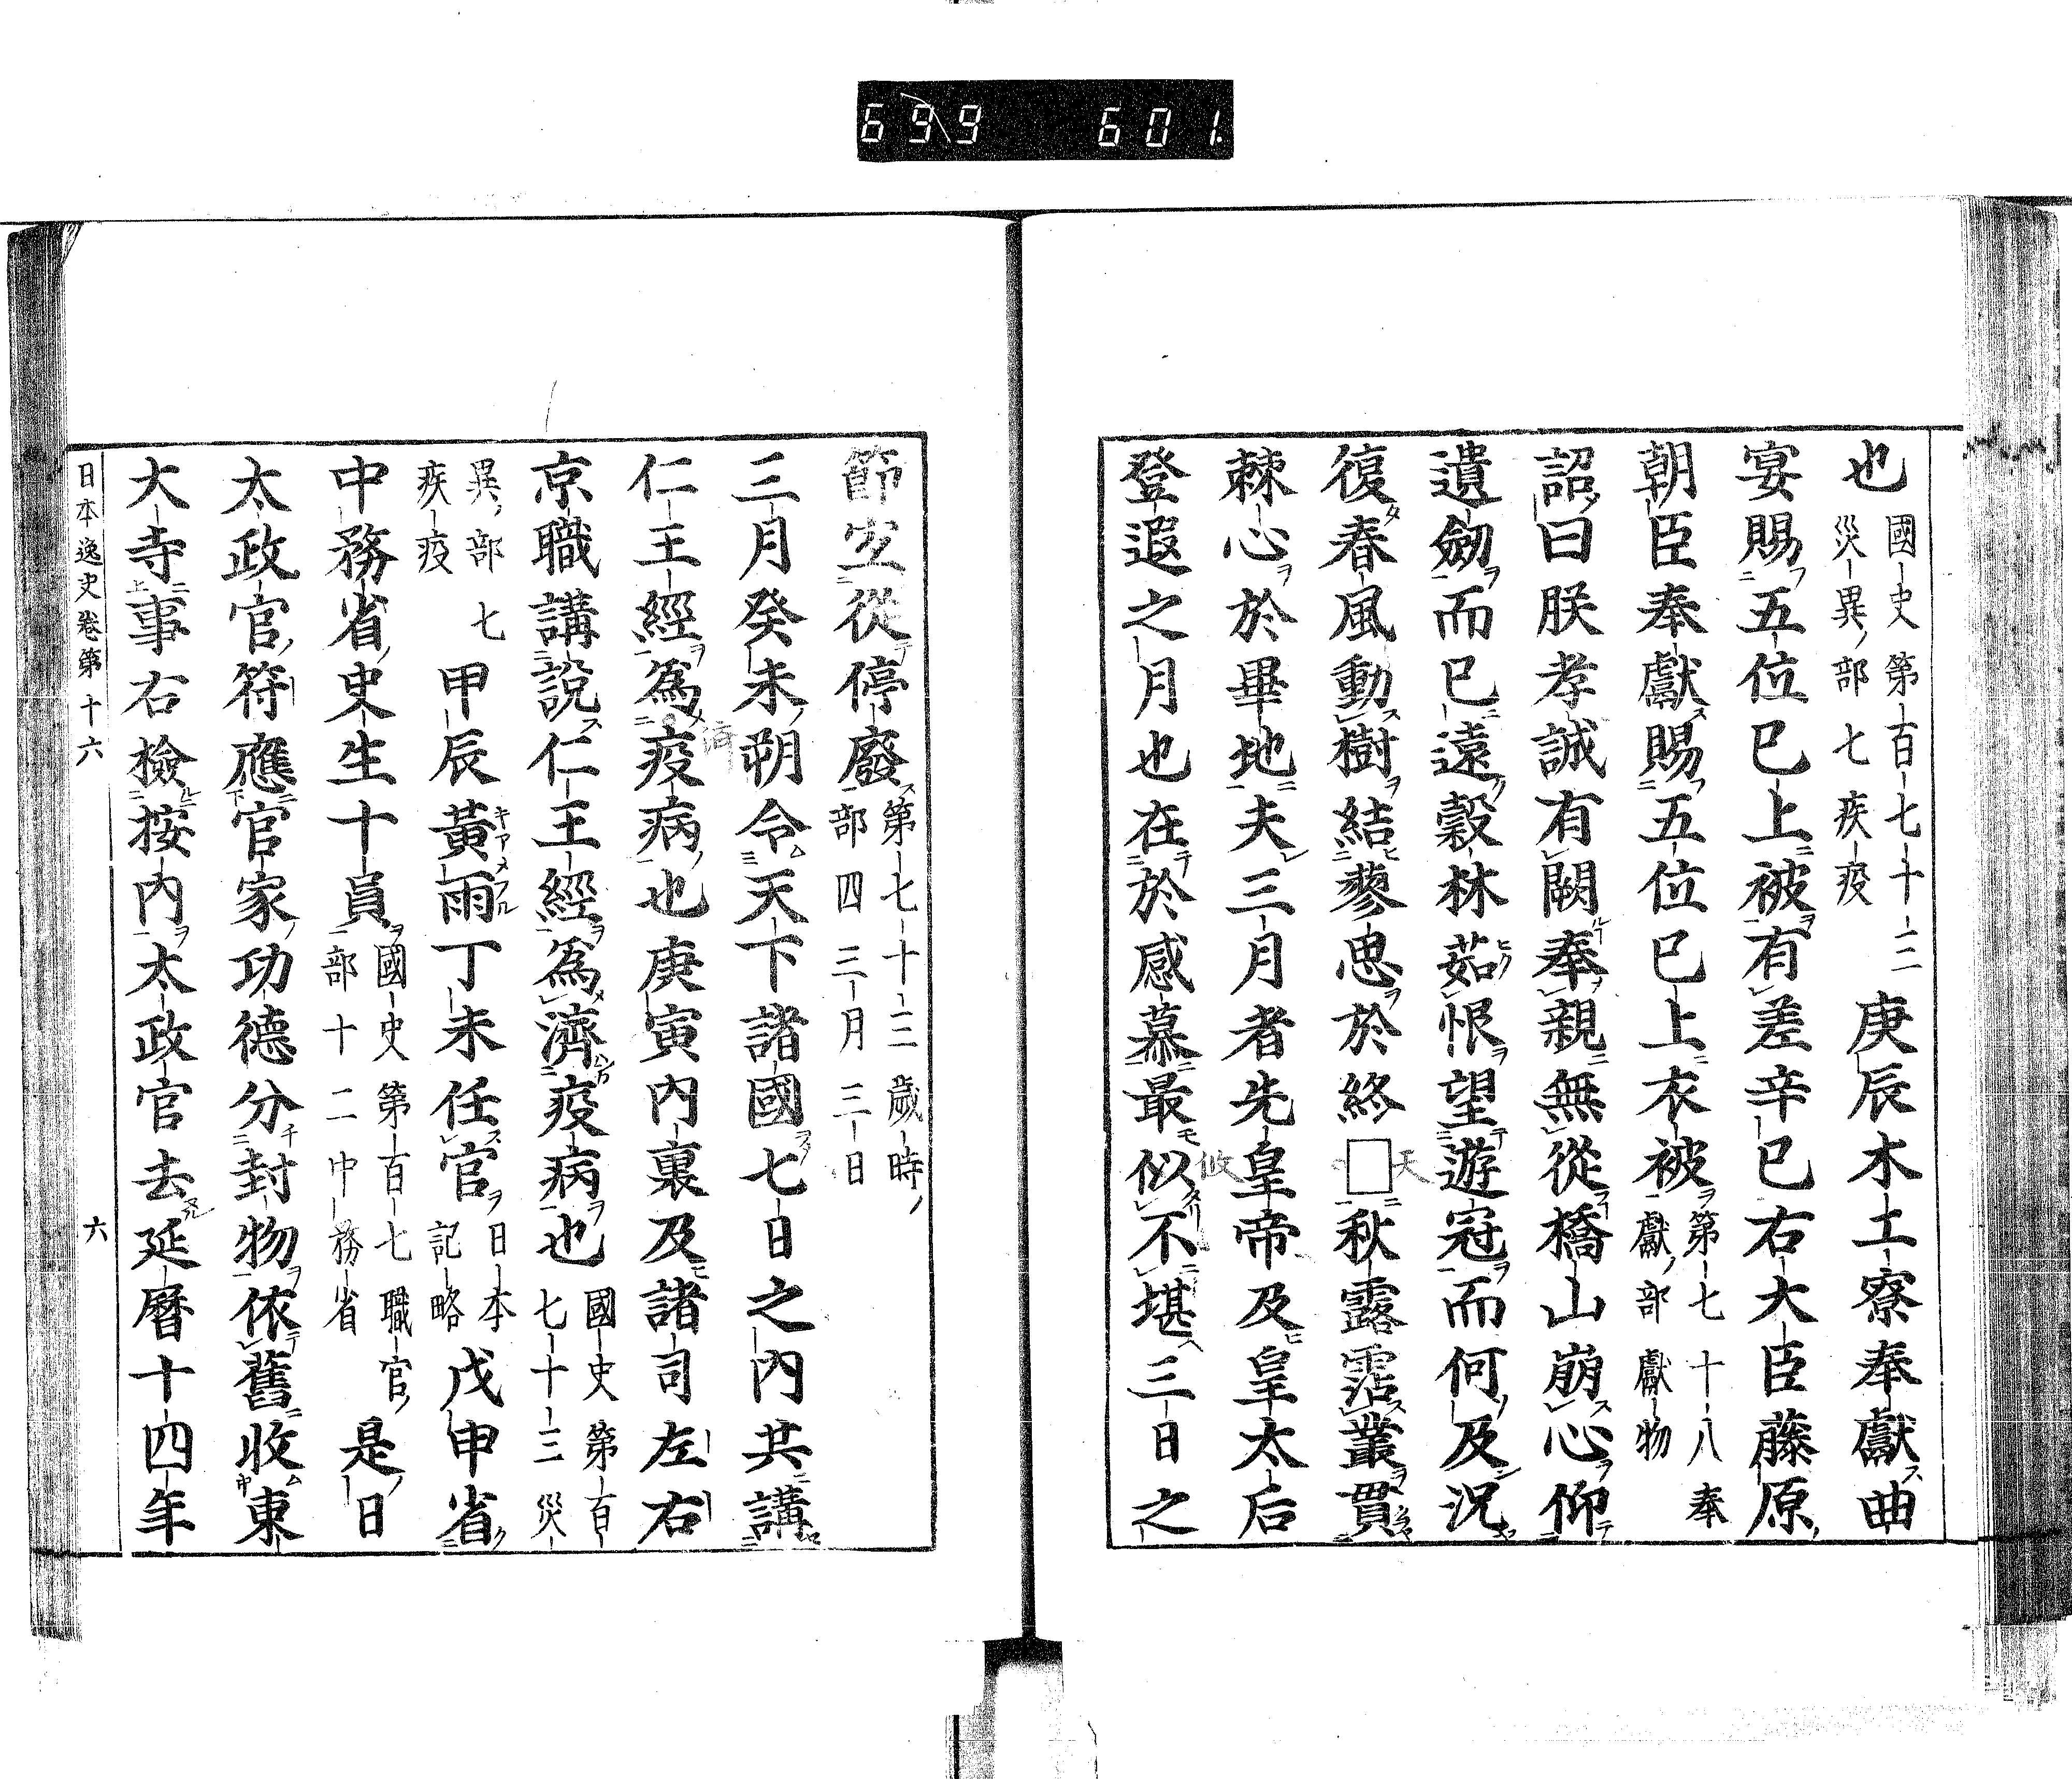 699 601
也 國史第百七十三災異部七疾疫 庚辰木工寮奉獻曲
宴賜五位已上被有差辛巳右大臣藤原
朝臣奉獻賜五位已上衣被 第七十八奉獻部獻物
詔曰朕孝誠有闕奉親無從橋山崩心仰
遺劒而已遠穀林茹恨望遊冠而何及況
復春風動樹結蓼思於終□秋露霑叢貫
棘心於畢地夫三月者先皇帝及皇太后
登遐之月也在於感慕最似不堪三日之
節宜從停廢 第七十三歲時部四三月三日
三月癸未朔令天下諸國七日之內共講
仁王經爲疫病也庚寅內裏及諸司左右
京職講說仁王經爲濟疫病也 國史第百七十三災
異部七疾疫 甲辰黃雨丁未任官 日本記略 戊申省
中務省史生十員 國史第百七職官部十二中務省 是日
太政官符應官家功德分封物依舊收東
大寺事右檢按內太政官去延曆十四年
日本逸史卷第十六 六